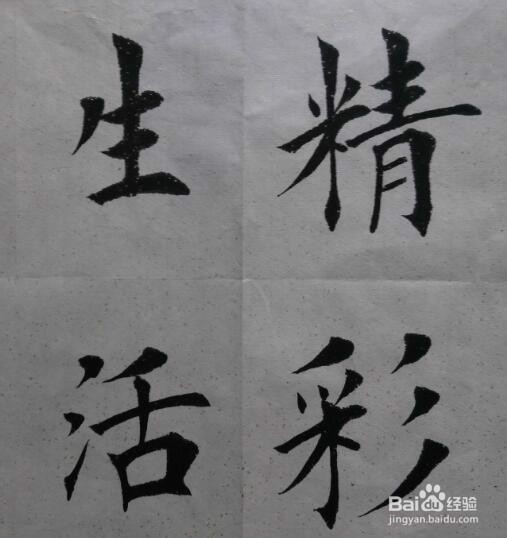 精彩
生活
Baidu经验
jingyan.baidu.com